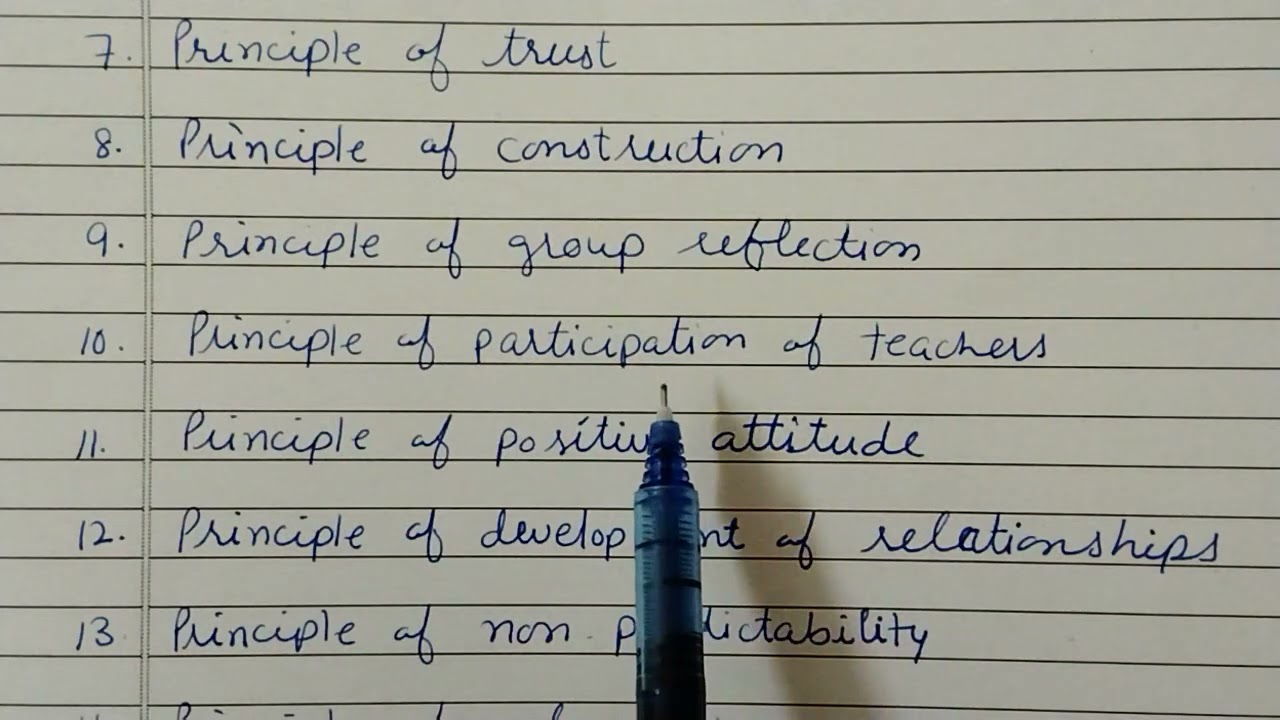 7. Principle of trust
8. Principle of construction
9. Principle of group reflection
10. Principle of participation of teachers
11. Principle of positive attitude
12. Principle of development of relationships
13 Principle of non predictability